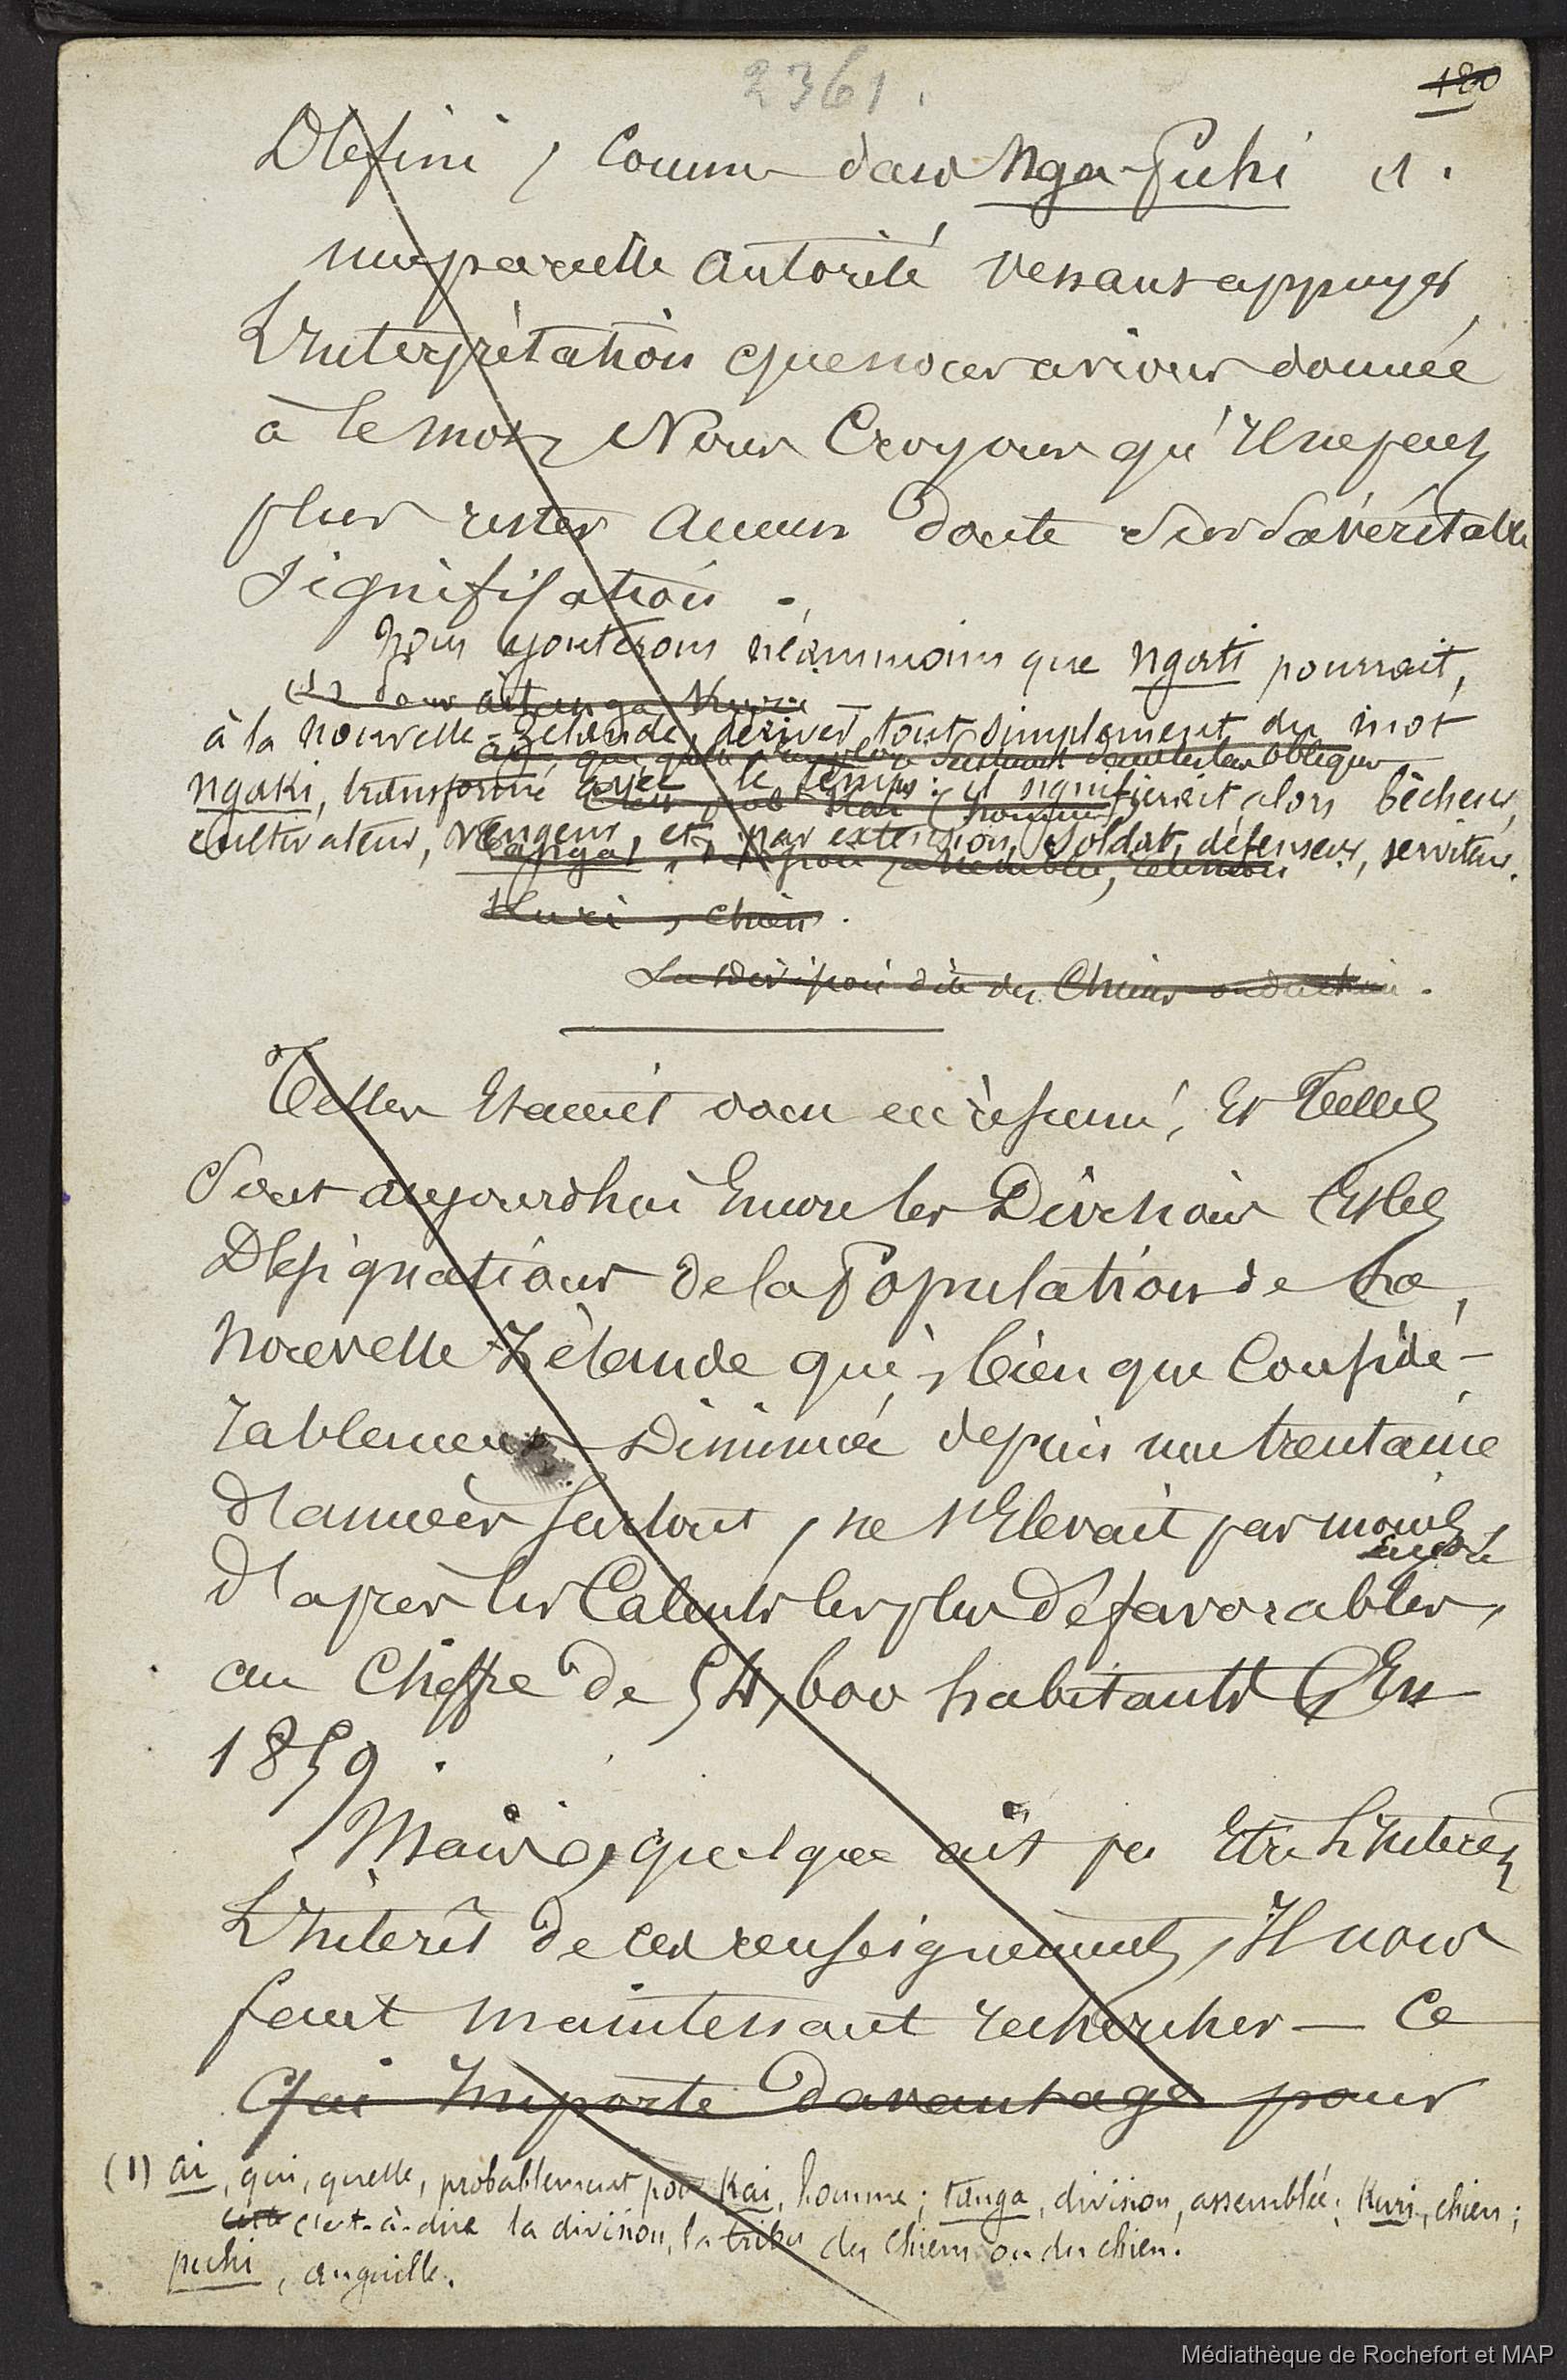 2361.
180
Défini, comme dans Nga-Puhi et.
une pareille autorité venant appuyer
L'Interprétation que nous avions donnée
à ce mot, Nous Croyons qu'il ne peut
plus rester aucun doute sur sa véritable
signification.
Nous ajouterons néanmoins que ngati pourrait,
à la nouvelle-Zélande, dériver tout simplement du mot
ngaki, transformé avec le temps: il signifierait alors bêcheur,
cultivateur, vengeur, et, par extension, soldat, défenseur, serviteur.
Kuri, chien.
La Division dite des Chiens ou du chien.
Telles étaient donc en résumé, Et Telles
Sont aujourd'hui Encore les Divisions Et les
Désignations de la Population de la
Nouvelle Zélande qui, bien que Considé-
rablement Diminuée depuis une trentaine
d'années surtout, ne s'Elevait pas moins
encore
d'après les Calculs les plus défavorables,
au Chiffre de 54,600 habitants En
1859.
Mais quelque ait pu Etre l'interêt
L'interêt de ces renseignements, Il nous
faut maintenant rechercher — Ce
qui Importe davantage pour
(1) ai, qui, quelle, probablement pour Kai, homme; tanga, division, assemblée; Kuri, chien;
c'est-à-dire la division, la tribu des chiens ou du chien.
puhi, anguille.
Médiathèque de Rochefort et MAP